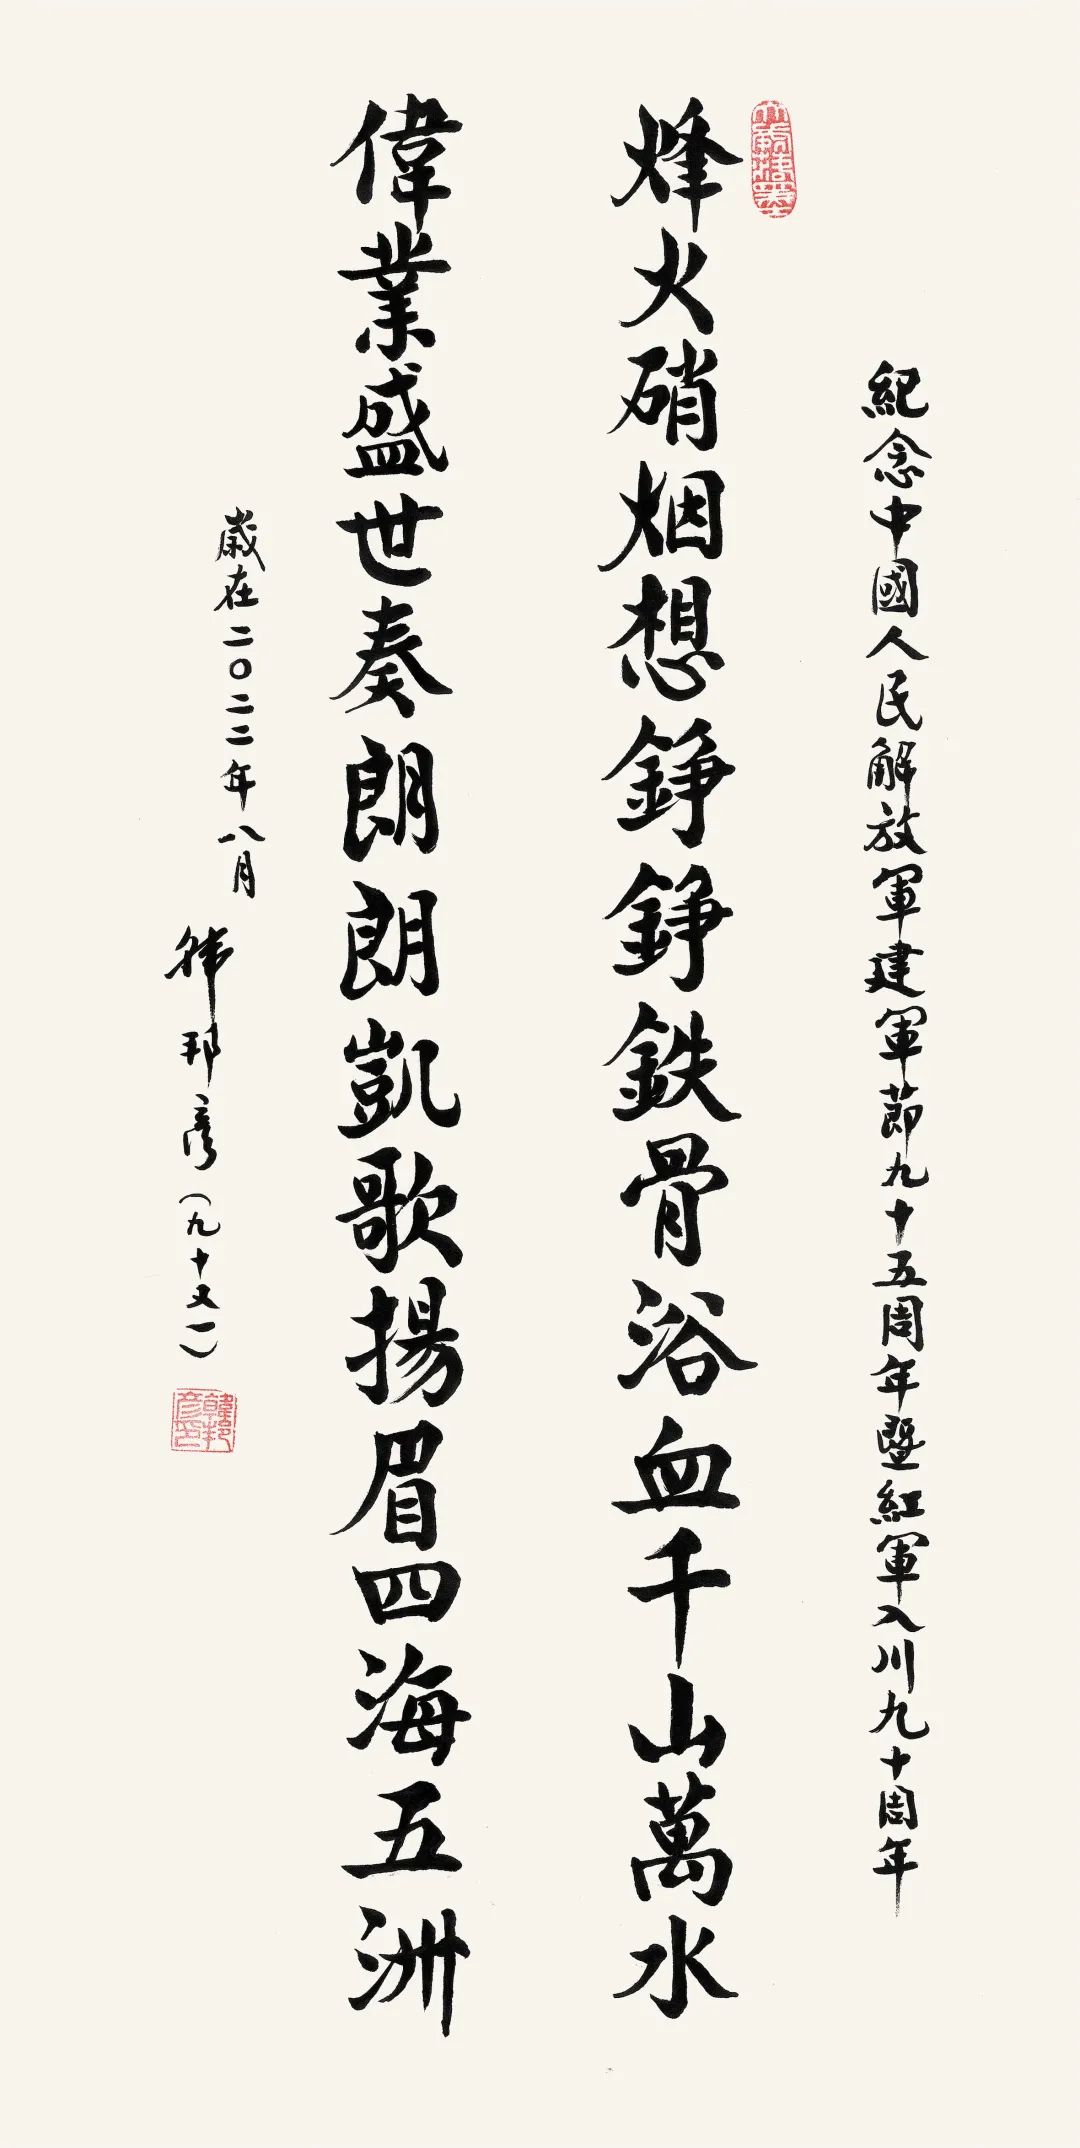 紀念中國人民解放軍建軍節九十五周年暨紅軍入川九十周年
烽火硝烟想錚錚鉄骨浴血千山萬水
偉業盛世奏朗朗凱歌揚眉四海五洲
歲在二〇二二年八月
韓邦彥(九十又一)
韓邦彥印